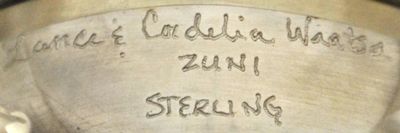 Lance & Cordelia Waatsa
ZUNI
STERLING